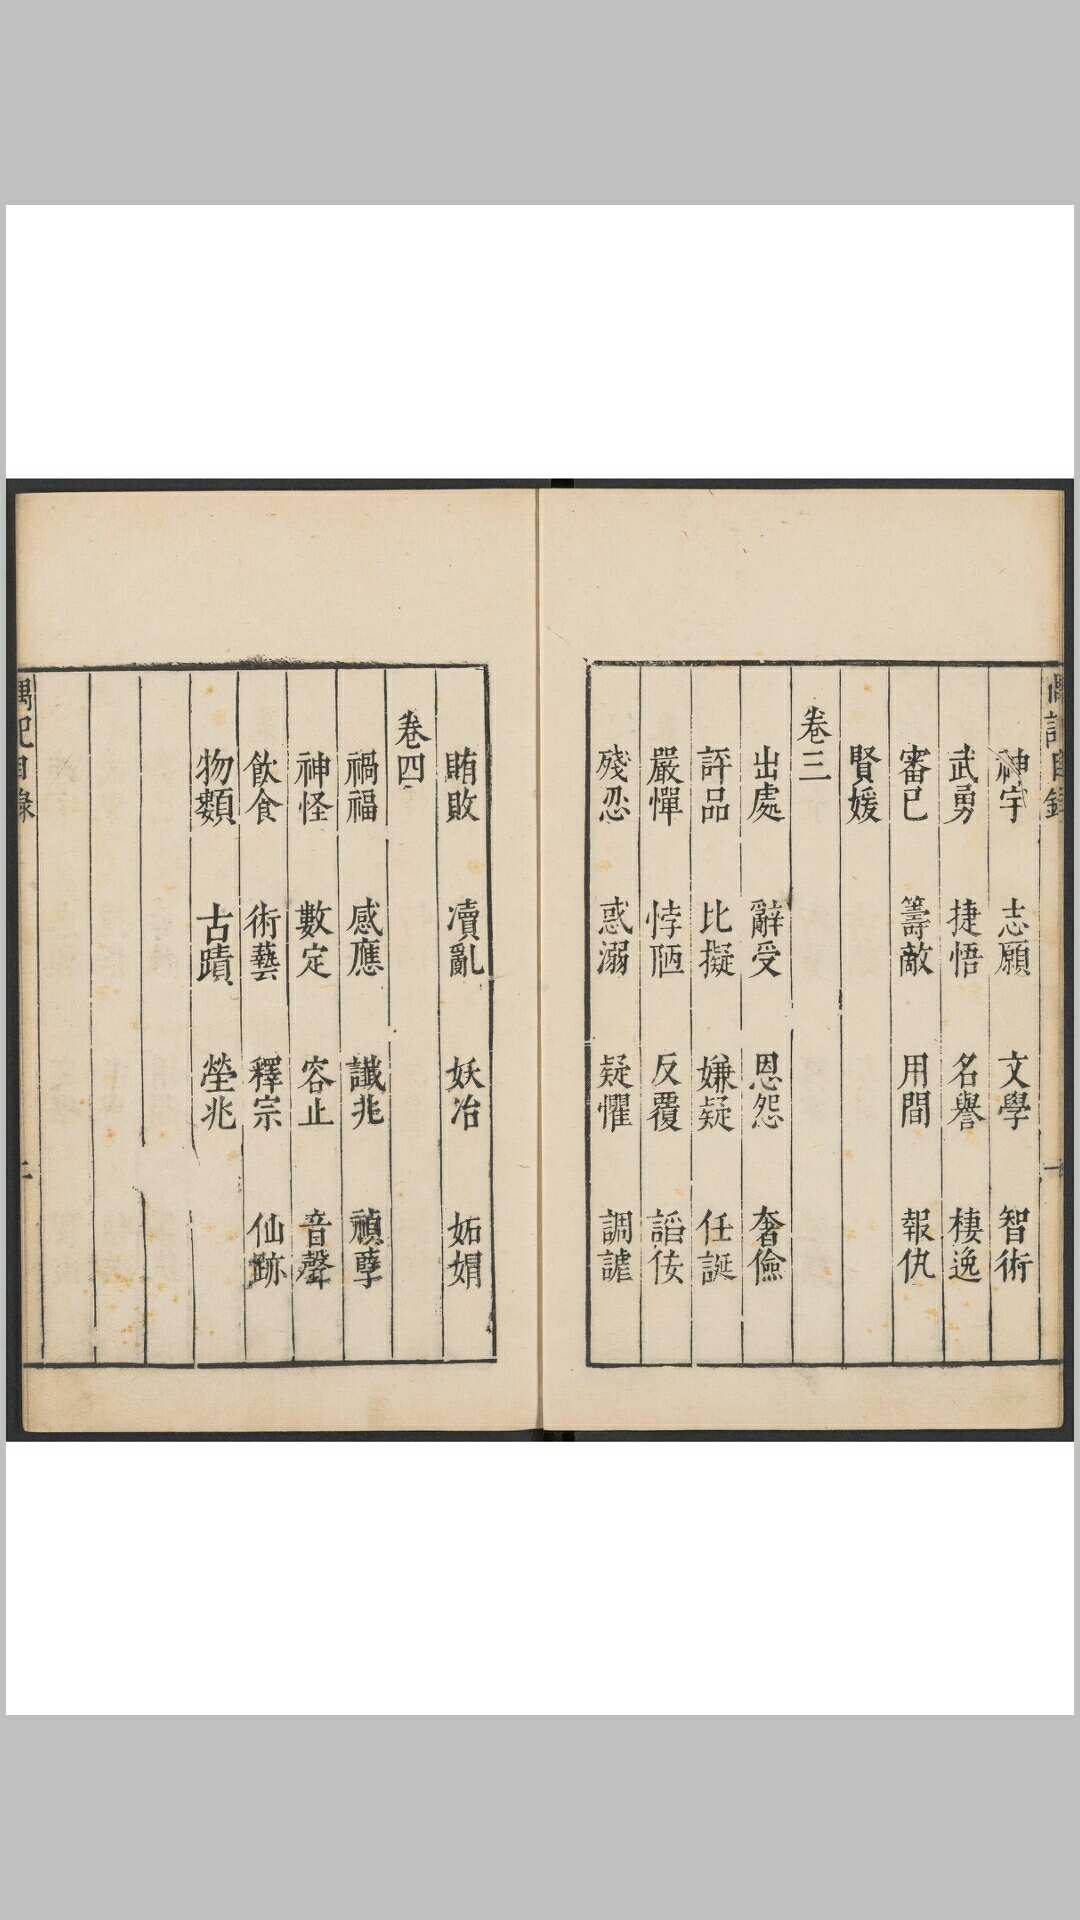 神宇 志願 文學 智術
武勇 捷悟 名譽 棲逸
審已 籌敵 用間 報仇
賢媛
卷三
出處 辭受 恩怨 奢儉
評品 比擬 嫌疑 任誕
嚴憚 悖陋 反覆 謟佞
殘忍 惑溺 疑懼 調謔
一
賄敗 凟亂 妖冶 妬娼
卷四
禍福 感應 讖兆 禎孽
神怪 數定 容止 音聲
飲食 術藝 釋宗 仙跡
物類 古蹟 塋兆
二